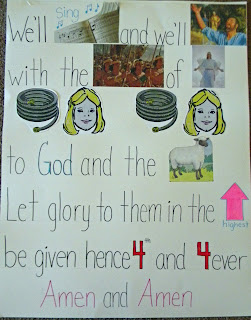 We'll Sing and we'll
with the of
to God and the
Let glory to them in the
highest
be given hence 4th and 4ever
Amen and Amen